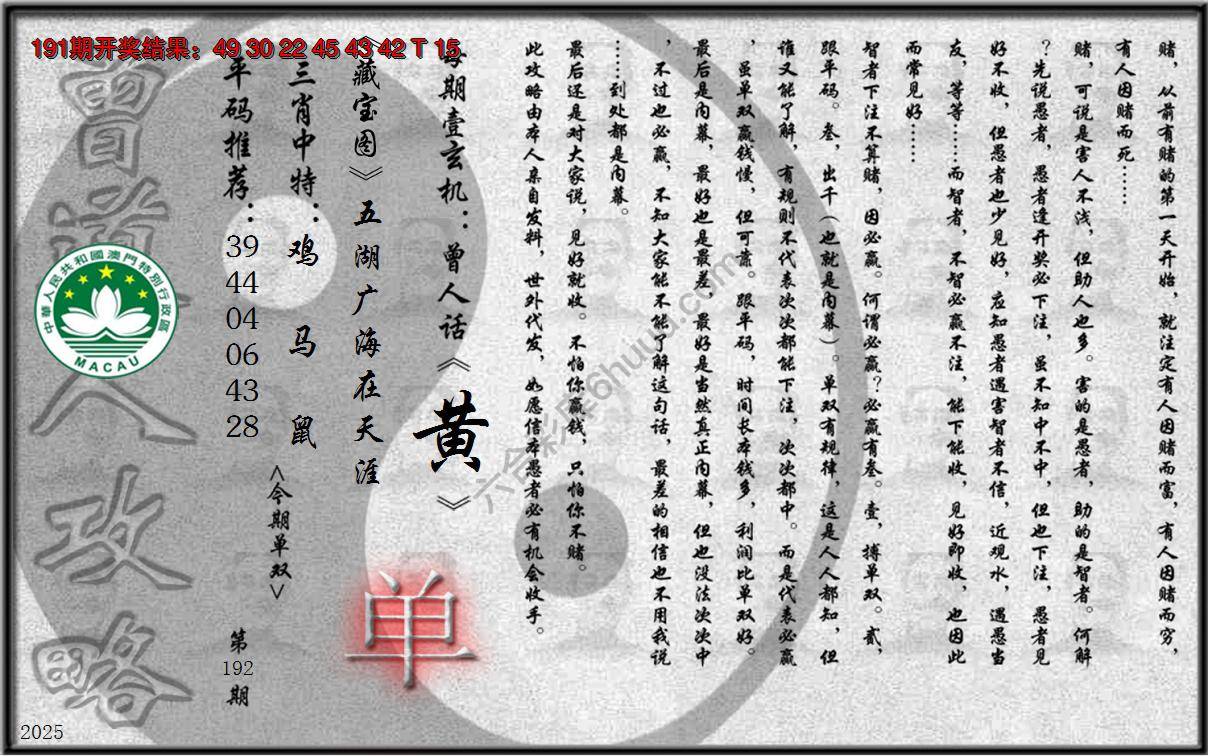 191期开奖结果：49 30 22 45 43 42 T 15
赌，从前有赌的第一天开始，就注定有人因赌而富，有人因赌而穷，
有人因赌而死……
赌，可说是害人不浅，但助人也多。害的是愚者，助的是智者。何解
？先说愚者，愚者逢开奖必下注，虽不知中不中，但也下注，愚者见
好不收，但愚者也少见好，应知愚者遇害智者不信，近观水，遇愚当
友，等等……而智者，不智必赢不注，能下能收，见好即收，也因此
而常见好……
智者下注不算赌，因必赢。何谓必赢？必赢有叁。壹，搏单双。贰，
跟平码。叁，出千（也就是内幕）。单双有规律，这是人人都知，但
谁又能了解，有规则不代表次次都能下注，次次都中。而是代表必赢
，虽单双赢钱慢，但可靠。跟平码，时间长本钱多，利润比单双好。
最后是内幕，最好也是最差，最好是当然真正内幕，但也没法次次中
，不过也必赢，不知大家能不能了解这句话，最差的相信也不用我说
……到处都是内幕。
最后还是对大家说，见好就收。不怕你赢钱，只怕你不赌。
此攻略由本人亲自发料，世外代发，如愿信本愚者必有机会收手。
每期壹玄机：曾人话《黄》
《藏宝图》五湖广海在天涯
三肖中特：鸡 马 鼠
平码推荐：39 44 04 06 43 28
<今期单双>
单
第192期
曾道人攻略
中華人民共和國澳門特別行政區
MACAU
六合彩库6huuu.com
2025